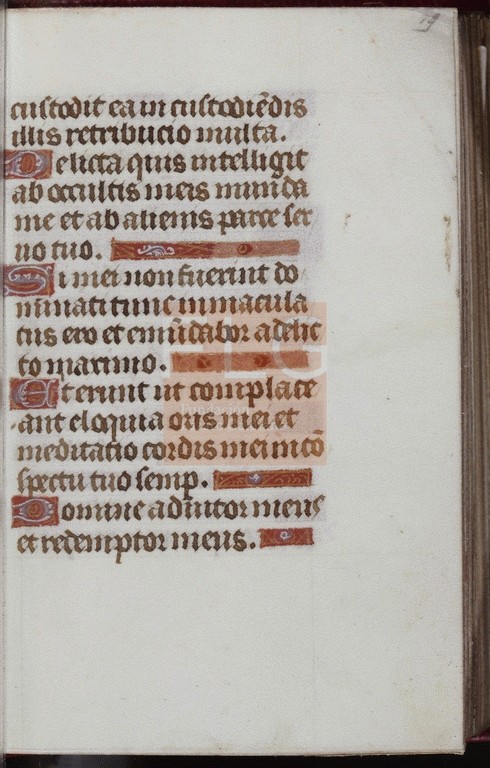 19
custodit ea in custodiēdis
illis retribucio multa.
Delicta quis intelligit
ab occultis meis munda
me et ab alienis parce ser
uo tuo.
Si mei non fuerint do
minati tunc inmacula
tus ero et emūdabor a delic
to maximo.
Et erunt ut complace
ant eloquia oris mei et
meditatio cordis mei in cō
spectu tuo semp.
Domine adiutor meus
et redemptor meus.